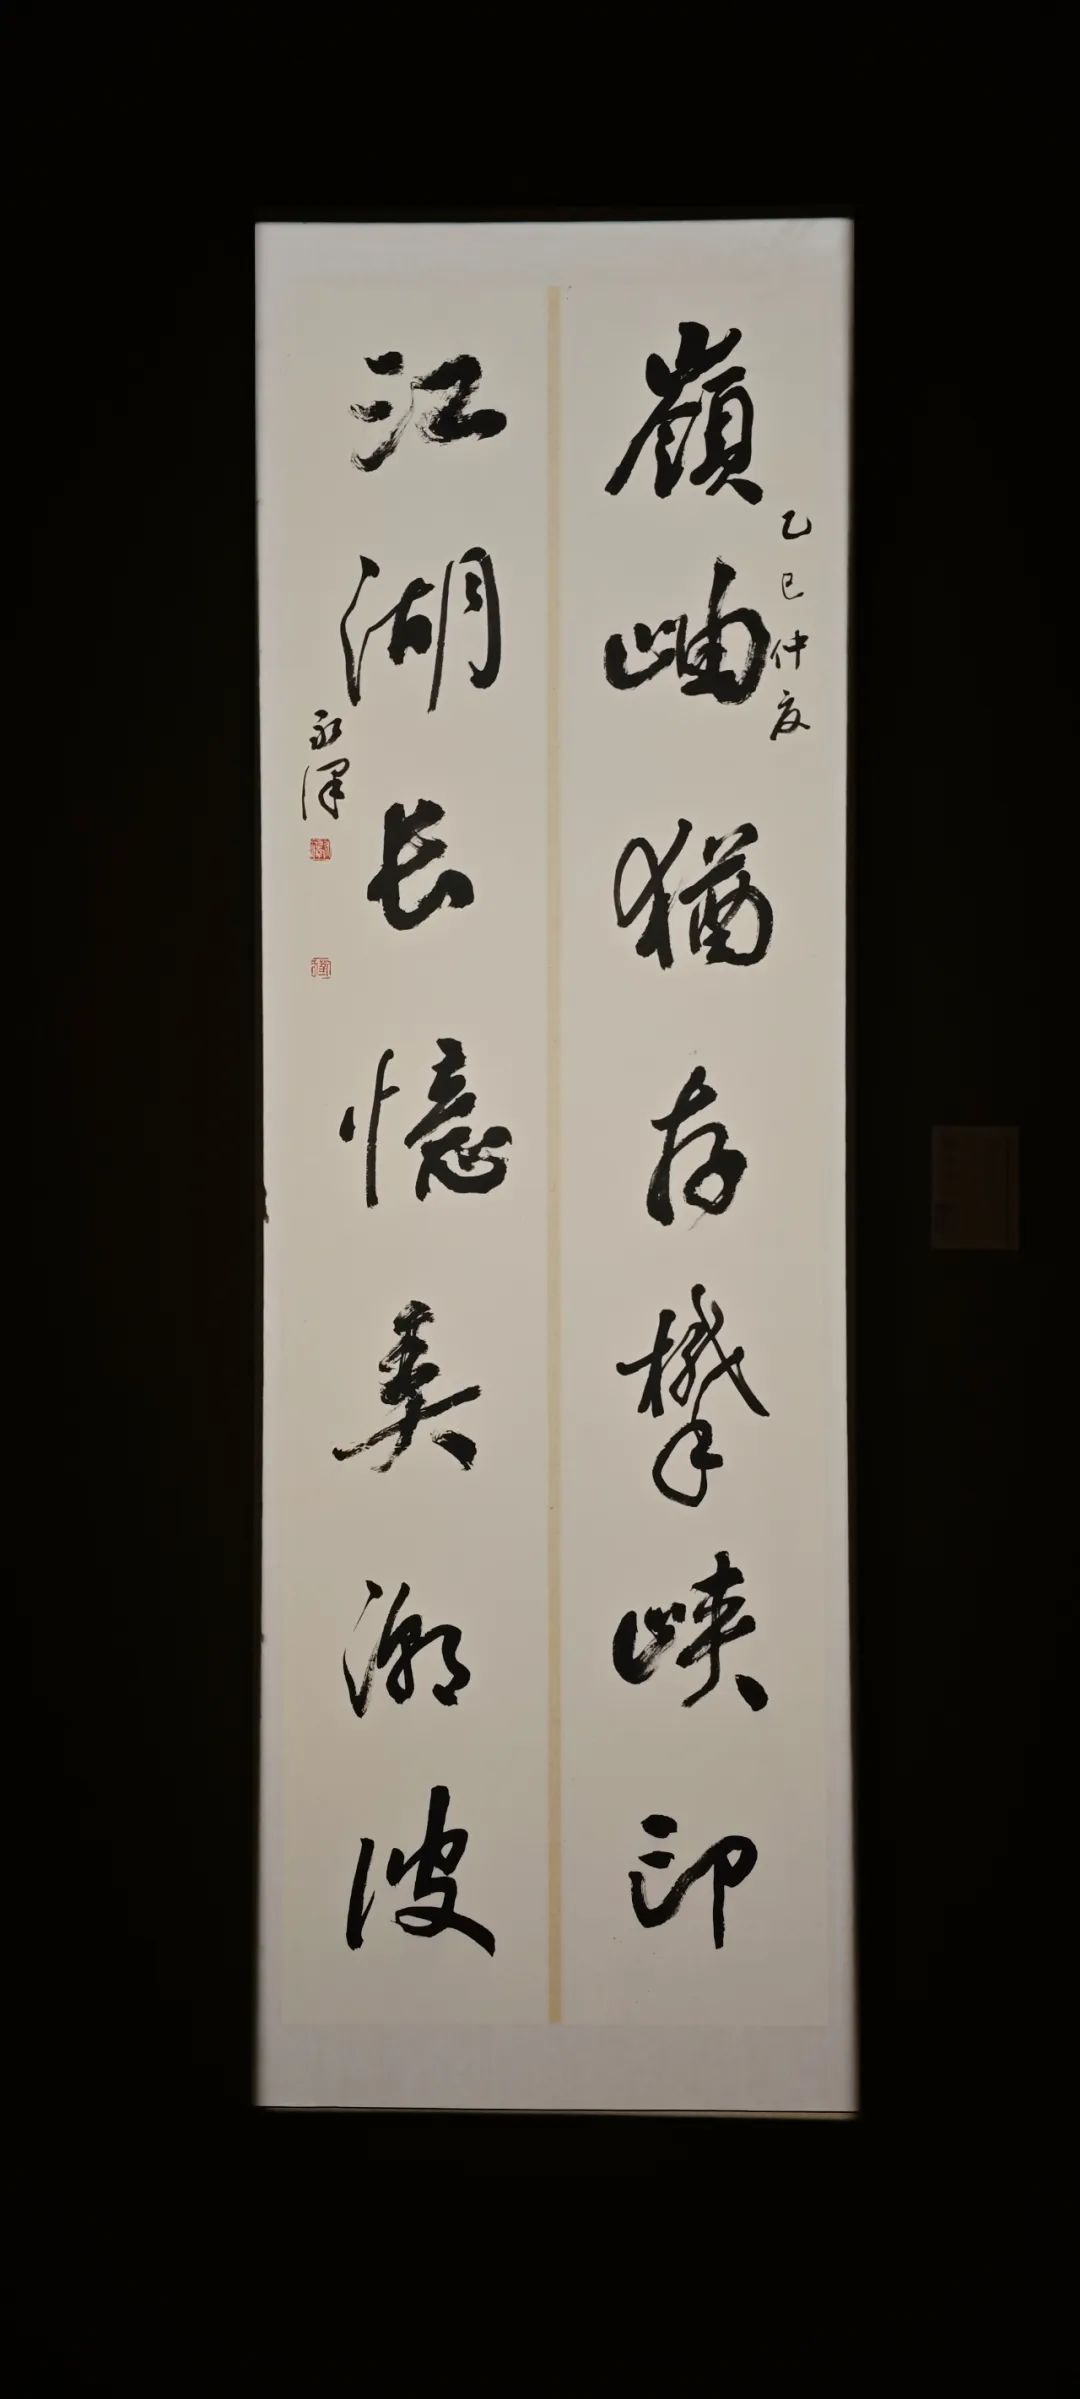 嶺岫猶存攀峽印
乙巳仲夏
江湖长憶美潮波
永澤